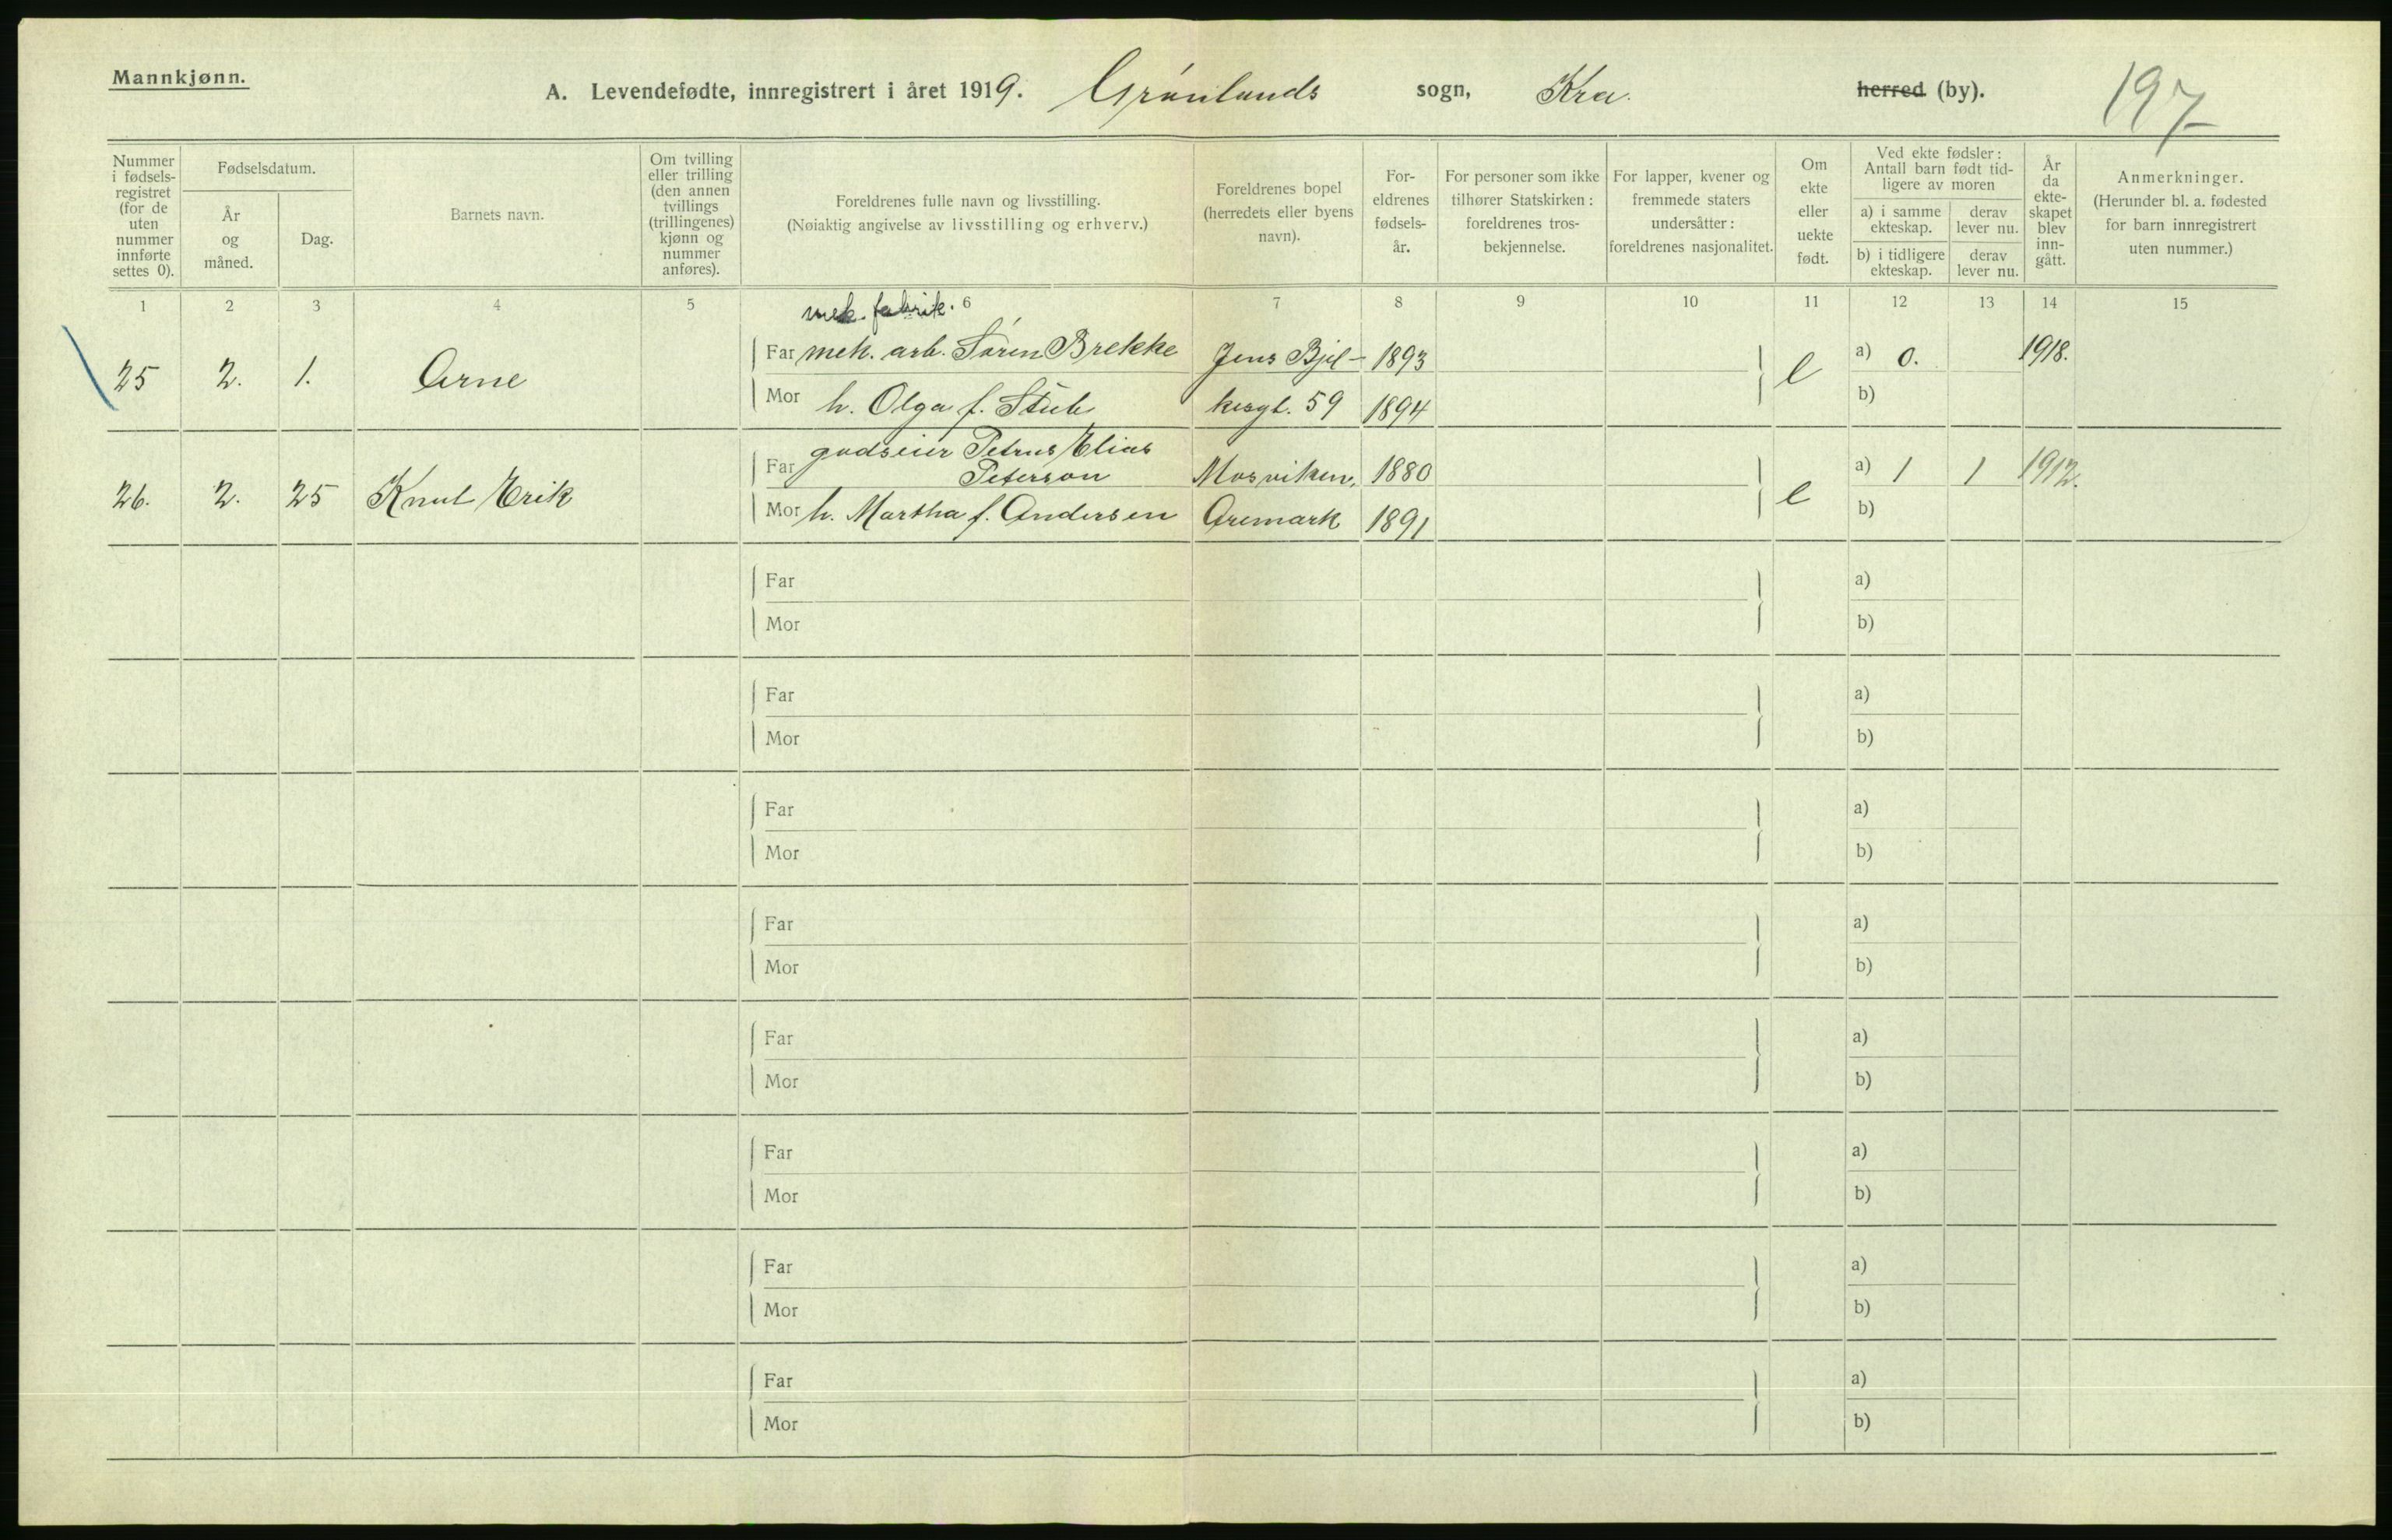 Mannkjønn.
A. Levendefødte, innregistrert i året 1919. Grønlands sogn, Kra. herred (by). 197
Nummer i fødsels-registret (for de uten nummer innførte settes 0).
Fødselsdatum.
År og måned.
Dag.
Barnets navn.
Om tvilling eller trilling (den annen tvillings (trillingenes) kjønn og nummer anføres).
Foreldrenes fulle navn og livsstilling.
(Nøiaktig angivelse av livsstilling og erhverv.)
Foreldrenes bopel (herredets eller byens navn).
For-eldrenes fødsels-år.
For personer som ikke tilhører Statskirken: foreldrenes tros-bekjennelse.
For lapper, kvener og fremmede staters undersåtter: foreldrenes nasjonalitet.
Om ekte eller uekte født.
Ved ekte fødsler: Antall barn født tid-ligere av moren
a) i samme ekteskap.
derav lever nu.
b) i tidligere ekteskap.
derav lever nu.
År da ekte-skapet blev inn-gått.
Anmerkninger.
(Herunder bl. a. fødested for barn innregistrert uten nummer.)
1 2 3 4 5 6 7 8 9 10 11 12 13 14 15
mek. fabrik.
25 2. 1. Arne Far mek. arb. Søren Brekke Jens Bjel- 1893 e a) 0. 1918.
Mor h. Olga f. Stub kesgt. 59 1894 b)
26. 2. 25 Knut Erik Far godseier Petrus Elias
Peterson Mosviken, 1880 e a) 1 1 1912.
Mor h. Martha f. Andersen Aremark 1891 b)
Far a)
Mor b)
Far a)
Mor b)
Far a)
Mor b)
Far a)
Mor b)
Far a)
Mor b)
Far a)
Mor b)
Far a)
Mor b)
Far a)
Mor b)